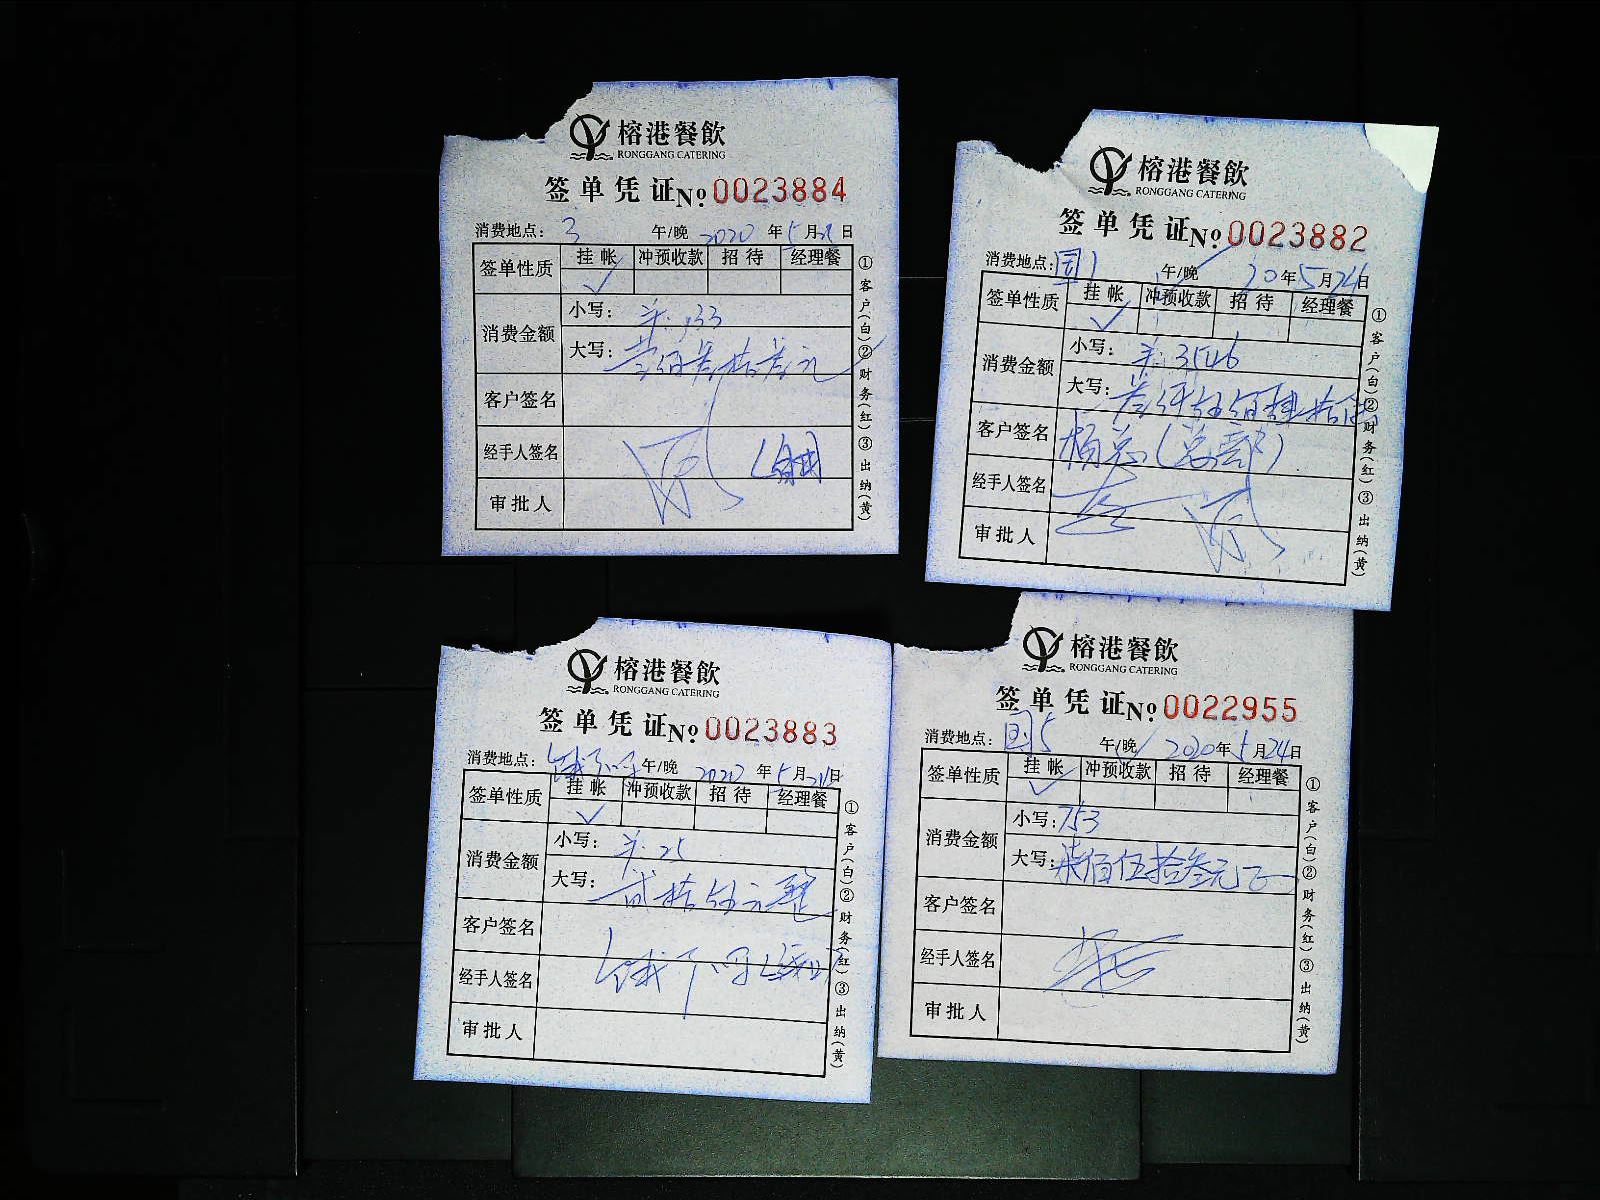 榕港餐飲
RONGGANG CATERING
签单凭证 No 0023884
消费地点： 3 午/晚 2020 年 5 月 日
签单性质 挂帐 冲预收款 招待 经理餐
✓
消费金额 小写： 133
大写： 壹佰叁拾叁元
客户签名
经手人签名
审批人
①客户(白)②财务(红)③出纳(黄)
榕港餐飲
RONGGANG CATERING
签单凭证 No 0023882
消费地点： 国1 午/晚 20 年 5 月 24 日
签单性质 挂帐 冲预收款 招待 经理餐
✓
消费金额 小写： 3546
大写： 叁仟伍佰肆拾陆
客户签名 杨总(总部)
经手人签名
审批人
①客户(白)②财务(红)③出纳(黄)
榕港餐飲
RONGGANG CATERING
签单凭证 No 0023883
消费地点： 饿了吗 午/晚 2020 年 5 月 24 日
签单性质 挂帐 冲预收款 招待 经理餐
✓
消费金额 小写： 25
大写： 贰拾伍元整
客户签名
经手人签名 饿了吗
审批人
①客户(白)②财务(红)③出纳(黄)
榕港餐飲
RONGGANG CATERING
签单凭证 No 0022955
消费地点： 国5 午/晚 2020 年 5 月 24 日
签单性质 挂帐 冲预收款 招待 经理餐
✓
消费金额 小写： 753
大写： 柒佰伍拾叁元正
客户签名
经手人签名
审批人
①客户(白)②财务(红)③出纳(黄)